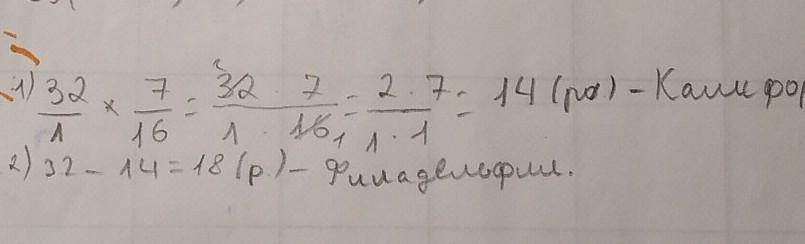 1) 32/1 × 7/16 = 32 · 7 / 1 · 16 = 2 · 7 / 1 · 1 = 14 (ро) - Калифор
2) 32 - 14 = 18 (р.) - Филадельфия.